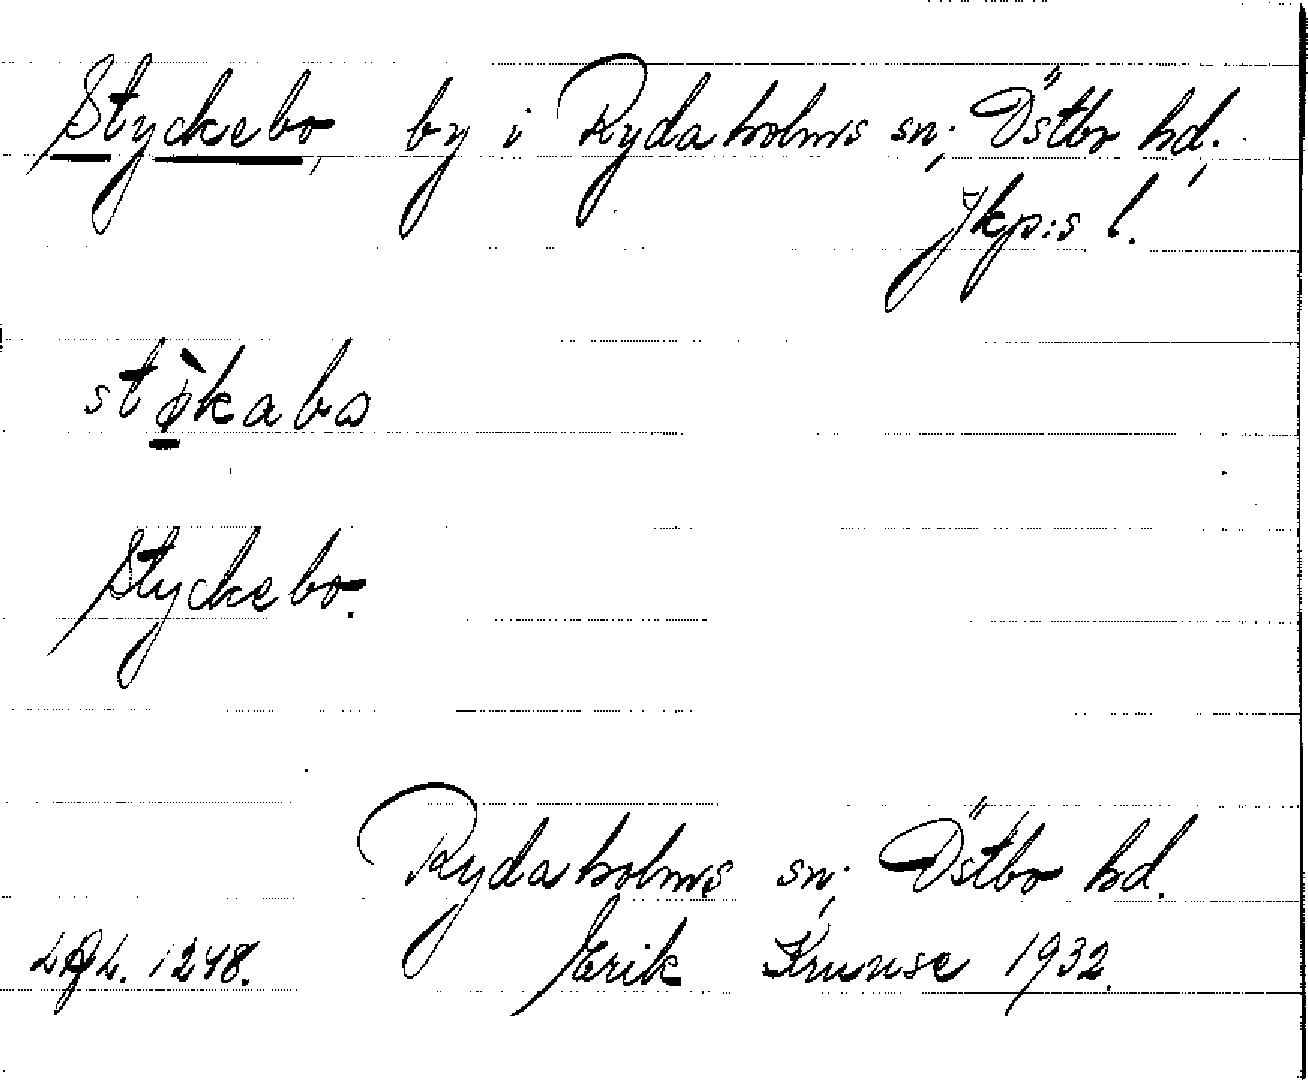 Styckebo, by i Rydaholms sn; Östbo hd.,
Jkp:s l.
Styckebo.
Rydaholms sn; Östbo hd.
1248. Erik Krunse 1932.